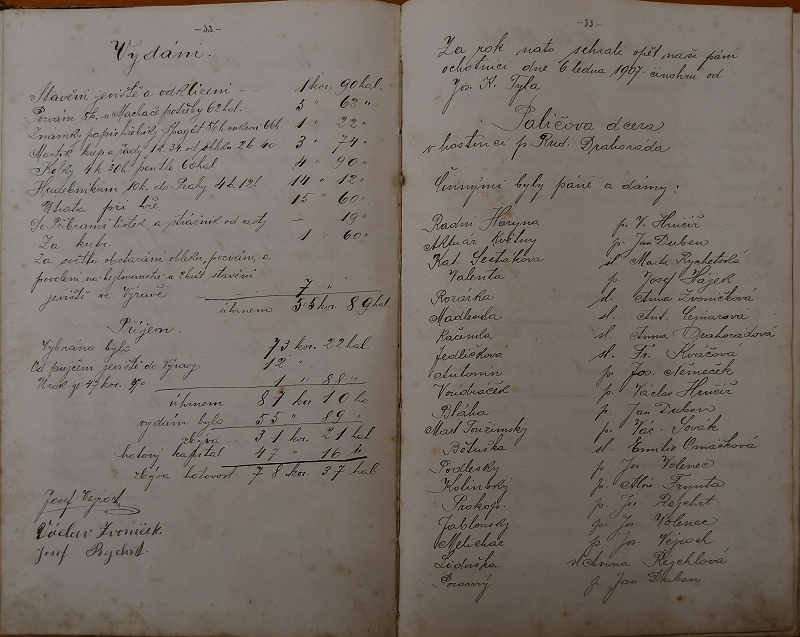 -32-
Vydání.
Stavění jeviště a odklízení - 1 kor. 90 hal.
Porván 5k. u Machač potřeby 62 hal. 5 " 62 "
Známky papír hřebík špagát 56 h. cukroví 66 h. 1 " 22 "
Mastik krep a řády 1k. 34 od 2k. 40. 3 " 74 "
Kolky 4k 30h. pentle 60 hal 4 " 90 "
Hudebníkům 10k. do Prahy 4k. 12h. 14 " 12 "
Útrata při hře 15 " 60 "
Do Příbrami lístek a strážník od cesty - 19 "
Za kupr. 1 " 60 "
Za světlo obstarání obleku, porván, a
povolení na hejtmanství a zkrát stavění
jeviště ve Výravě 7 "
úhrnem 55 kor. 89 hal.
Příjem.
Vybráno bylo 73 kor. 22 hal.
Od půjčení jeviště do Výravy 12 "
Úrok ze 47 kor. 1 " 88 "
úhrnem 87 kor. 10 ho
vydáni bylo 55 " 89 "
zbývá 31 kor. 21 hal
hotový kapitál 47 " 16 "
zbývá hotovost 78 kor. 37 hal.
Josef Vejroch
Václav Zvoníček.
Josef Rejchrt.
-33-
Za rok nato sehráli opět naši páni
ochotníci dne 6 ledna 1907. činohru od
Jos. K. Tyla
Paličova dcera
v hostinci p. Rud. Drahoráda
Činnými byly páni a dámy:
Radní Horyna p. V. Hručíř
Aktuár Květný p. Jan Duben
Kat. Šestáková sl. Marta Rychetská
Valenta p. Josef Hájek
Rozárka sl. Anna Zvoníčková
Madlenda sl. Ant. Cemarová
Kačenda sl. Anna Drahorádová
Jedličková sl. Fr. Kváčová
Antonín p. Jos. Němeček
Vondráček p. Václav Hručíř
Bláha p. Jan Duben
Mart Toužimský p. Vác. Sovák
Bětuška sl. Emilie Omáčková
Podleský p. Jos. Volenec
Kolínský p. Alois Frynta
Prokop. p. Jos. Rejchrt
Jablonský p. Jos. Volenec
Melichar p. Jos. Vejroch
Liduška sl. Anna Rejchlová
Ponocný p. Jan Duben